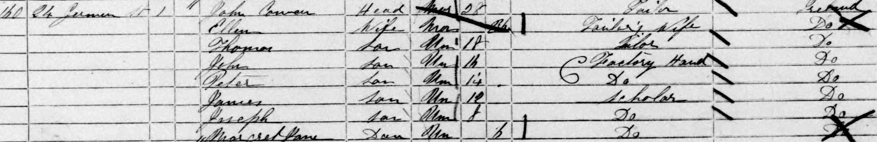 160 24 Jermen St 1 John Head Mar Tailor Ireland
Ellen Wife Mar Tailor's Wife Do
Thomas son Un 18 Tailor Do
John son Un 16 Factory Hand Do
Peter son Un 14 Do Do
James son Un 10 scholar Do
Joseph son Un 8 Do Do
Margret Jane Dau Un 6 Do Do